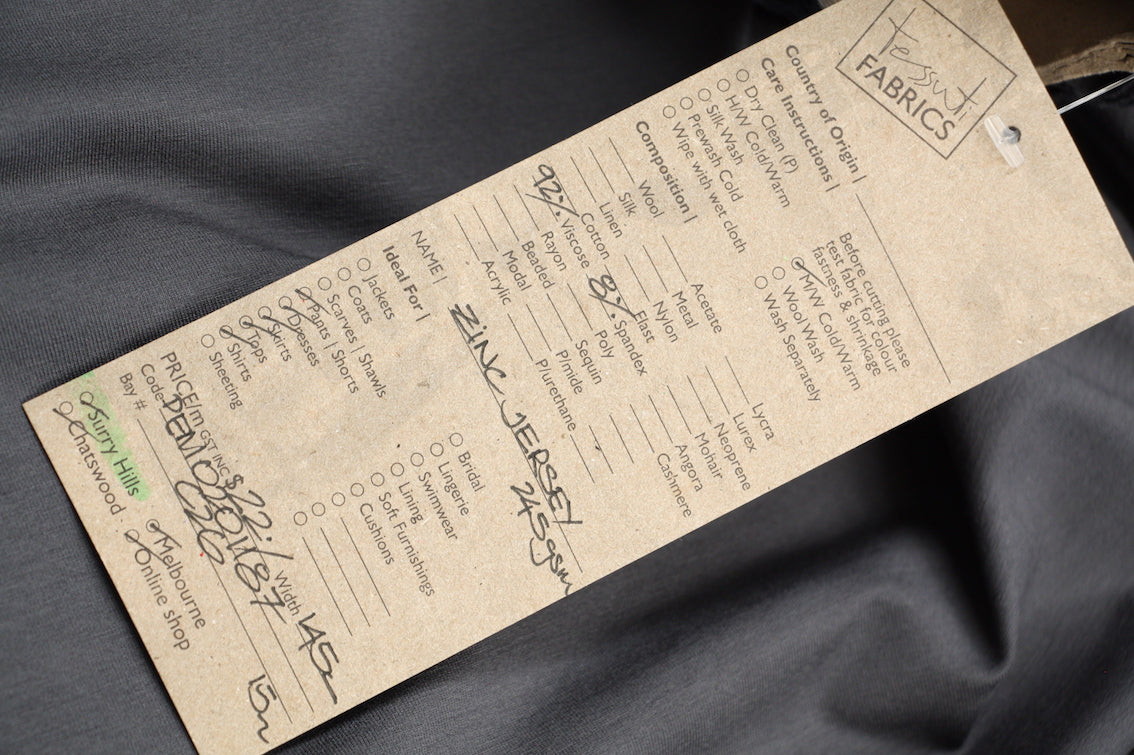 Tessuti
FABRICS
Country of Origin |
Care Instructions |
Dry Clean (P)
H/W Cold/Warm
Silk Wash
Prewash Cold
Wipe with wet cloth
Before cutting please
test fabric for colour
fastness & shrinkage
M/W Cold/Warm
Wool Wash
Wash Separately
Composition |
Wool
Silk
Linen
Cotton
92% Viscose
Rayon
Beaded
Modal
Acrylic
Acetate
Metal
Nylon
Elast
8% Spandex
Poly
Sequin
P/mide
P/urethane
Lycra
Lurex
Neoprene
Mohair
Angora
Cashmere
NAME | ZINC JERSEY
245gsm
Ideal For |
Jackets
Coats
Scarves | Shawls
Pants | Shorts
Dresses
Skirts
Tops
Shirts
Sheeting
Bridal
Lingerie
Swimwear
Lining
Soft Furnishings
Cushions
PRICE/m GST INC $22 Width 145
Code
Bay #
Surry Hills
Chatswood
Melbourne
Online shop
15m